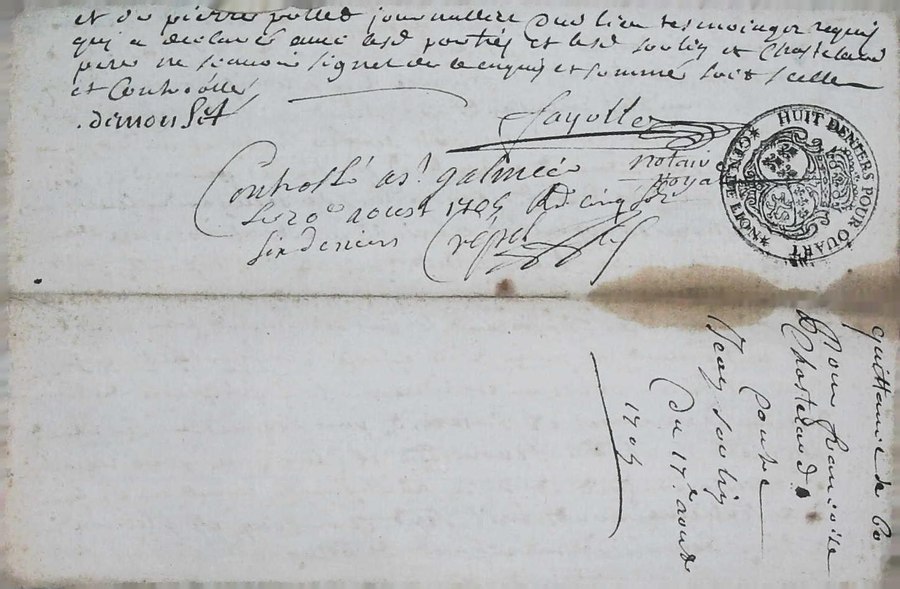 et de pierre pollet journallier dud lieu tesmoing requis
qui a declaré avec lesd parties et lesd soulis et Chastelard
pere ne scavoir signer de ce enquis et sommé soit scellé
et Controollé
demonset
Fayolle
notaire
royal
Controllé a st galmier
le 20e aoust 1705 Rd cinq sols
six deniers Crepet
HUIT DENIERS POUR QUART
GNLITE LION
quittance de 60
Pour francoise
Chastelard
contre
Jean soulis
Du 17e aoust
1705